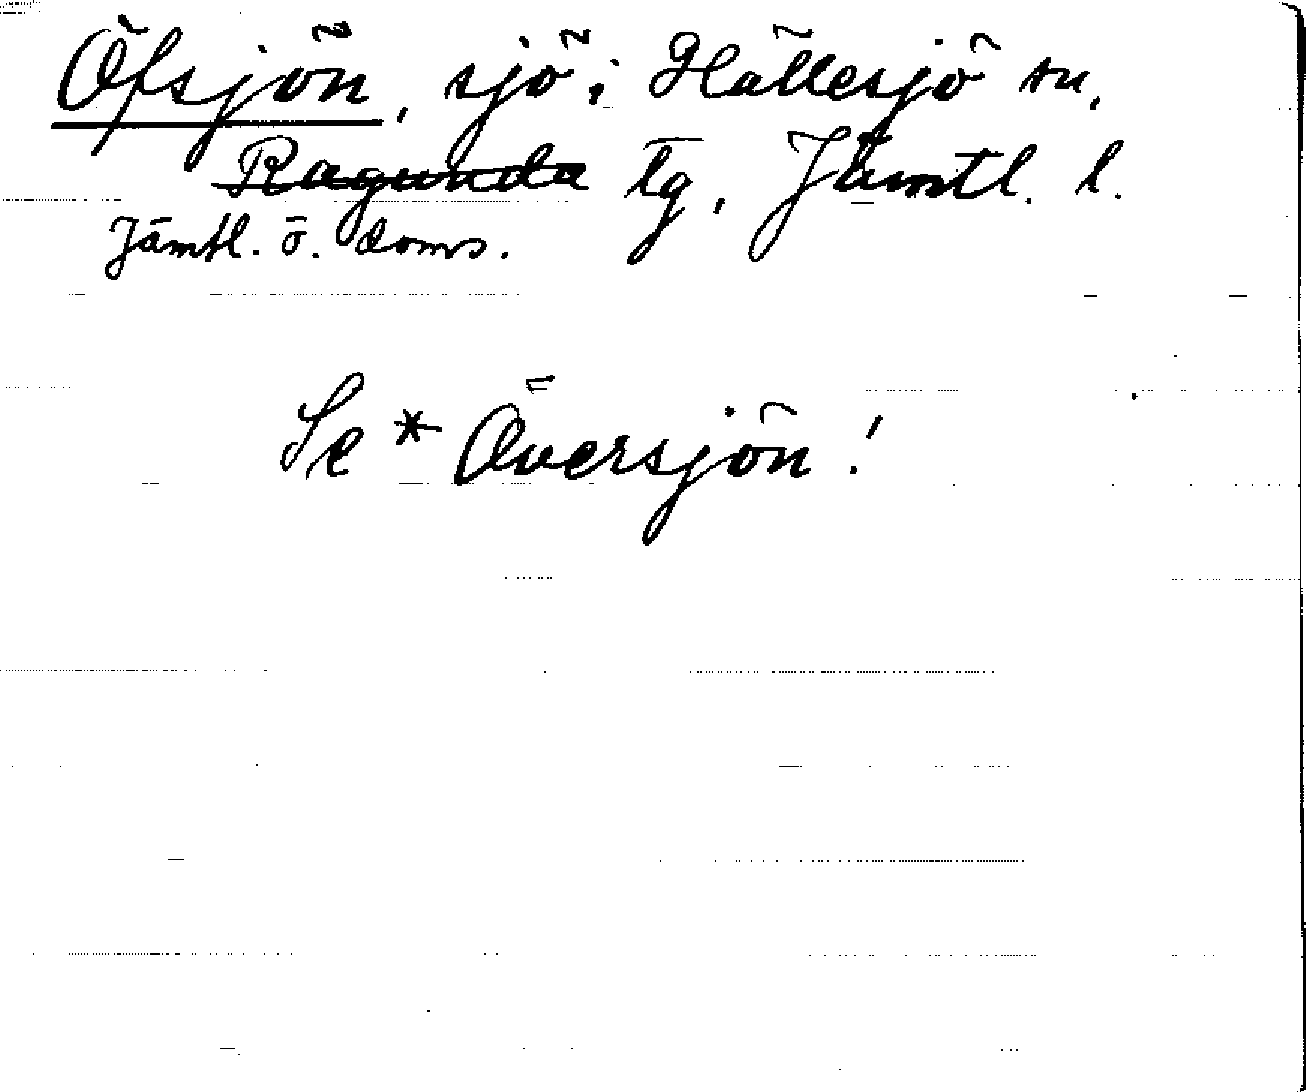 Öfsjön, sjö i Hällesjö sn,
Ragunda tg, Jämtl. l.
Jämtl. ö. doms.
Se * Översjön!